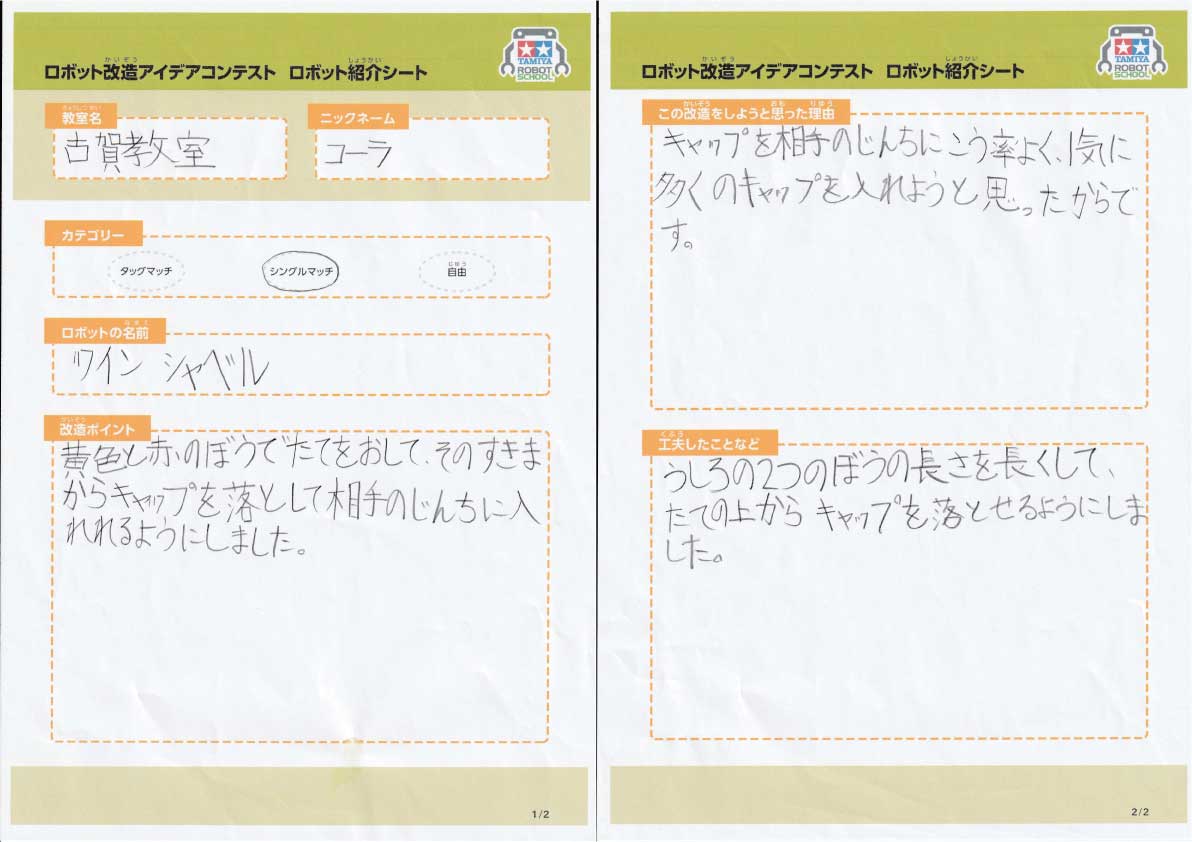 ロボット改造アイデアコンテスト ロボット紹介シート
かいぞう
しょうかい
TAMIYA
ROBOT
SCHOOL
きょうしつめい
教室名
古賀教室
ニックネーム
コーラ
カテゴリー
タッグマッチ
シングルマッチ
じゆう
自由
なまえ
ロボットの名前
ツイン シャベル
かいぞう
改造ポイント
黄色と赤のぼうでたてをおして、そのすきま
からキャップを落として相手のじんちに入
れれるようにしました。
1/2
かいぞう
しょうかい
ロボット改造アイデアコンテスト ロボット紹介シート
TAMIYA
ROBOT
SCHOOL
かいぞう おも りゆう
この改造をしようと思った理由
キャップを相手のじんちにこう率よく、1気に
多くのキャップを入れようと思ったからで
す。
くふう
工夫したことなど
うしろの2つのぼうの長さを長くして、
たての上からキャップを落とせるようにしま
した。
2/2